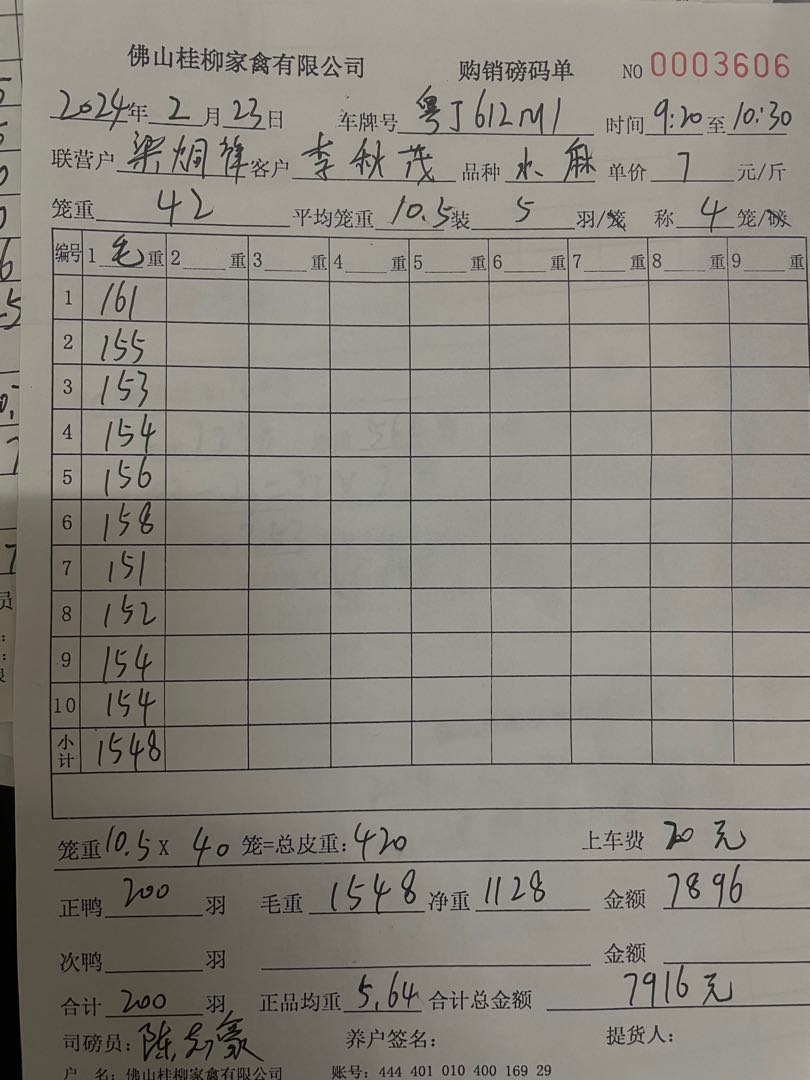 佛山桂柳家禽有限公司 购销磅码单 NO 0003606
2024年 2 月 23 日 车牌号 粤J612M1 时间 9:20 至 10:30
联营户 梁炯锋 客户 李秋茂 品种 水麻 单价 7 元/斤
笼重 42 平均笼重 10.5 装 5 羽/笼 称 4 笼/磅
编号 1 毛 重 2 重 3 重 4 重 5 重 6 重 7 重 8 重 9 重
1 161
2 155
3 153
4 154
5 156
6 158
7 151
8 152
9 154
10 154
小计 1548
笼重 10.5 X 40 笼=总皮重: 420 上车费 20 元
正鸭 200 羽 毛重 1548 净重 1128 金额 7896
次鸭 羽 金额
合计 200 羽 正品均重 5.64 合计总金额 7916元
司磅员: 陈志豪 养户签名: 提货人:
户 名: 佛山桂柳家禽有限公司 账号: 444 401 010 400 169 29